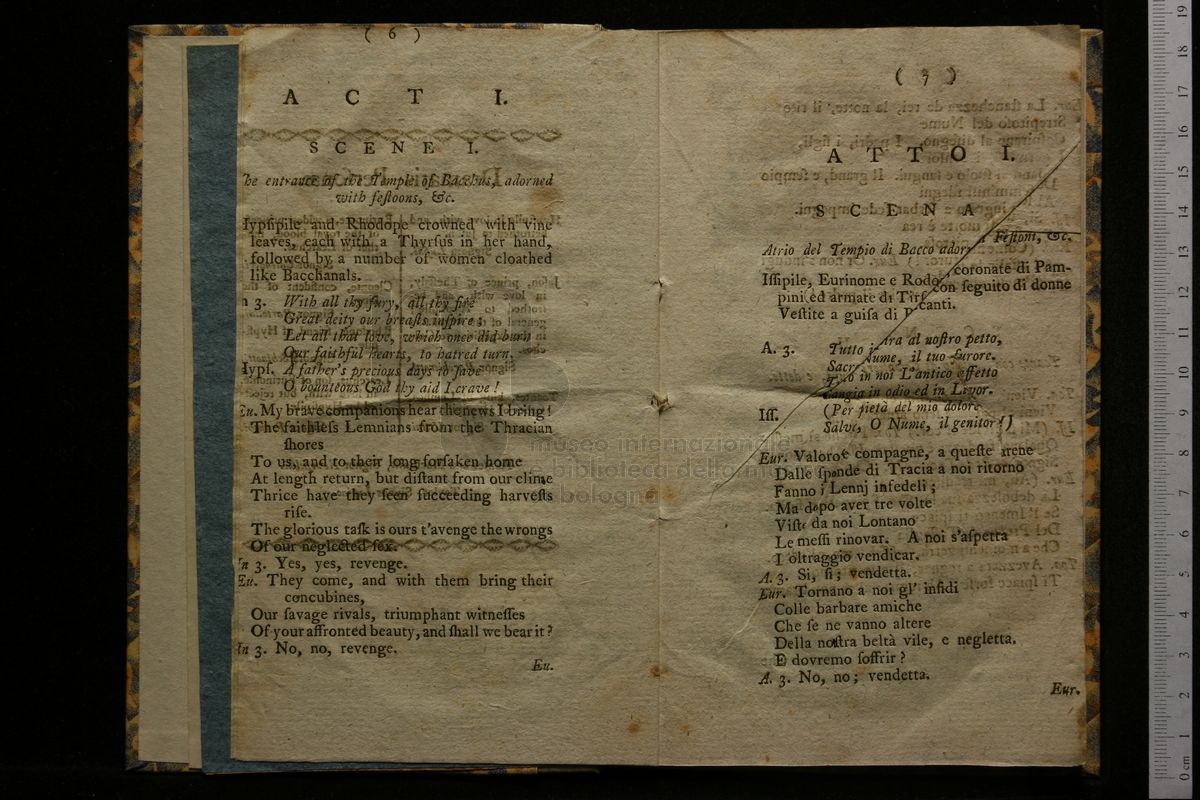 ( 6 )
A C T I.
S C E N E I.
he entrance of the Temple of Bacchus, adorned
with feſtoons, &c.
Hypſipile and Rhodope crowned with vine
leaves, each with a Thyrſus in her hand,
followed by a number of women cloathed
like Bacchanals.
n 3. With all thy fury, all thy fire
Great deity our breaſts inſpire;
Let all that love, which once did burn
Our faithful hearts, to hatred turn.
Hypſ. A father's precious days to ſave
O bounteous God thy aid I crave!
Eu. My brave companions hear the news I bring!
The faithleſs Lemnians from the Thracian
ſhores
To us, and to their long forſaken home
At length return, but diſtant from our clime
Thrice have they ſeen ſucceeding harveſts
riſe.
The glorious taſk is ours t'avenge the wrongs
Of our neglected ſex.
In 3. Yes, yes, revenge.
Eu. They come, and with them bring their
concubines,
Our ſavage rivals, triumphant witneſſes
Of your affronted beauty, and ſhall we bear it?
In 3. No, no, revenge.
Eu.
( 7 )
A T T O I.
S C E N A
Atrio del Tempio di Bacco ador Feſtoni, &c.
Iſſipile, Eurinome e Rodo, coronate di Pam-
pini, ed armate di Tirſ con ſeguito di donne
Veſtite a guiſa di canti.
A. 3. Tutto ira al noſtro petto,
Sacro Nume, il tuo furore.
in noi L'antico effetto
Cangia in odio ed in Livor.
Iſſ. (Per pietà del mio dolore
Salve, O Nume, il genitor!)
Eur. Valoroſe compagne, a queſte arene
Dalle ſponde di Tracia a noi ritorno
Fanno i Lennj infedeli;
Ma dopo aver tre volte
Viſte da noi Lontano
Le meſſi rinovar. A noi s'aſpetta
L'oltraggio vendicar.
A. 3. Si, ſi; vendetta.
Eur. Tornano a noi gl' infidi
Colle barbare amiche
Che ſe ne vanno altere
Della noſtra beltà vile, e negletta.
E dovremo ſoffrir?
A. 3. No, no; vendetta.
Eur.
museo internazionale
e biblioteca della musica
bologna